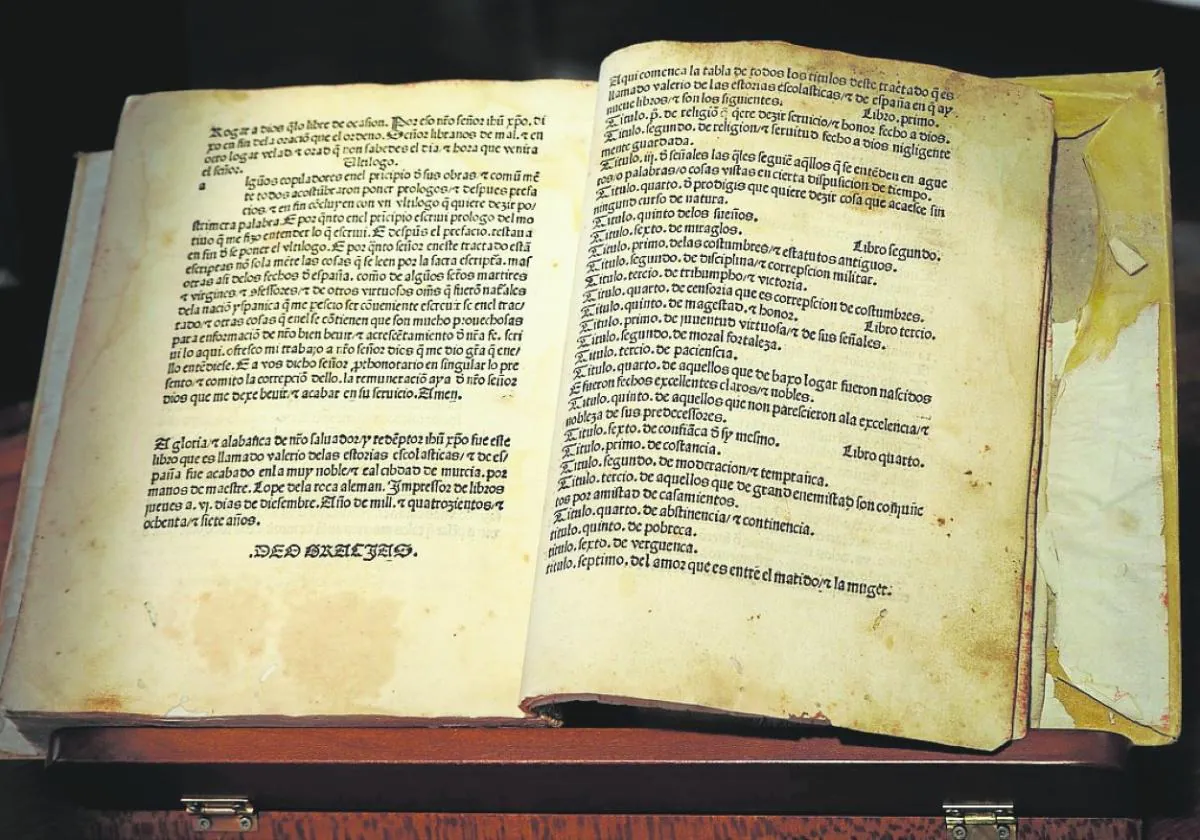 Rogar a dios q̄lo libre de ocasion. Por eso nr̄o señor ihū xp̄o. di
xo en fin dela oraciō que el ordeno. Señor libranos de mal. ⁊ en
otro logar velad ⁊ orad q̄ non sabedes el dia ⁊ hora que venira
el señor.
Vltilogo.
a lgūos copiladores enel pricipio d̄ sus obras ⁊ comū mē
te todos acostūbraron poner prologos ⁊ despues prefa
cios. ⁊ en fin cōcluyen con vn vltilogo q̄ quiere dezir po/
strimera palabra. E por q̄nto enel pricipio escriui prologo del mo
tiuo q̄ me fizo entender lo q̄ escriui. E despūs el prefacio. restaua
en fin d̄ se poner el vltilogo. E por q̄nto señor eneste tractado estā
escriptas nō sola mēte las cosas q̄ se leen por la sacra escriptā. mas
otras asi delos fechos d̄ españa. como de algūos sētos martires
⁊ virgines. ⁊ ɔfessores/⁊ de otros virtuosos om̄s q̄ fuerō naťales
dela naciō yspanica q̄ me pescio ser cōueniente escreuir se enel trac/
tado/⁊ otras cosas q̄ enel se cōtienen que son mucho prouechosas
para enformaciō de nr̄o bien beuir/⁊ acrescētamiento d̄ nr̄a fe. scri
ui lo aqui. ofresco mi trabajo a nr̄o señor dios q̄ me dio grā q̄ ene/
llo entēdiese. E a vos dicho señor ꝓthonotario en singular lo pre
sento/⁊ comito la correpciō dello. la remuneraciō aya d̄ nr̄o señor
dios que me dexe beuir/⁊ acabar en su seruicio. Amen.
A gloria/⁊ alabāça de nr̄o saluador/y redēptor ihū xp̄o fue este
libro que es llamado valerio delas estorias escolasticas/⁊ de es/
paña fue acabado enla muy noble/⁊ leal cibdad de murcia. por
manos de maestre. Lope dela roca aleman. Impressor de libros
jueues a. vj. dias de diesembre. Año de mill. ⁊ quatrozientos/⁊
ochenta/⁊ siete años.
.DEO GRACIAS.
Aqui comença la tabla de todos los titulos deste tractado q̄ es
llamado valerio de las estorias escolasticas/⁊ de españa en q̄ ay
nueue libros/⁊ son los siguientes.
Libro. primo.
Titulo. p̄. de religiō q̄ q̄ere dezir seruicio/⁊ honor fecho a dios.
Titulo. segundo. de religion/⁊ seruitud fecho a dios nigligente
mente guardada.
Titulo. iij. d̄ señales las q̄les seguiē aq̄llos q̄ se entēden en ague
ros/o palabras/o cosas vistas en cierta dispusicion de tiempo.
Titulo. quarto. d̄ prodigis que quiere dezir cosa que acaesce sin
ningund curso de natura.
Titulo. quinto delos sueños.
Titulo. sexto. de miraglos.
Libro segundo.
Titulo. primo. delas costumbres/⁊ estatutos antiguos.
Titulo. segundo. de disciplina/⁊ correpscion militar.
Titulo. tercio. de triumpho/⁊ victoria.
Titulo. quarto. de censoria que es correpscion de costumbres.
Titulo. quinto. de magestad. ⁊ honor.
Libro tercio.
Titulo. primo. de juuentud virtuosa/⁊ de sus señales.
Titulo. segundo. de moral fortaleza.
Titulo. tercio. de paciensçia.
Titulo. quarto. de aquellos que de baxo logar fueron nascidos
E fueron fechos excellentes claros/⁊ nobles.
Titulo. quinto. de aquellos que non parescieron ala excelencia/⁊
nobleza de sus predecessores.
Titulo. sexto. de confiāca d̄ sy mesmo.
Libro quarto.
Titulo. primo. de costancia.
Titulo. segundo. de moderacion/⁊ temprança.
Titulo. tercio. de aquellos que de grand enemistad son conjūñc
tos por amistad de casamientos.
Titulo. quarto. de abstinencia/⁊ continencia.
titulo. quinto. de pobreça.
titulo. sexto. de verguença.
titulo. septimo. del amor que es entrē el marido/⁊ la muger.